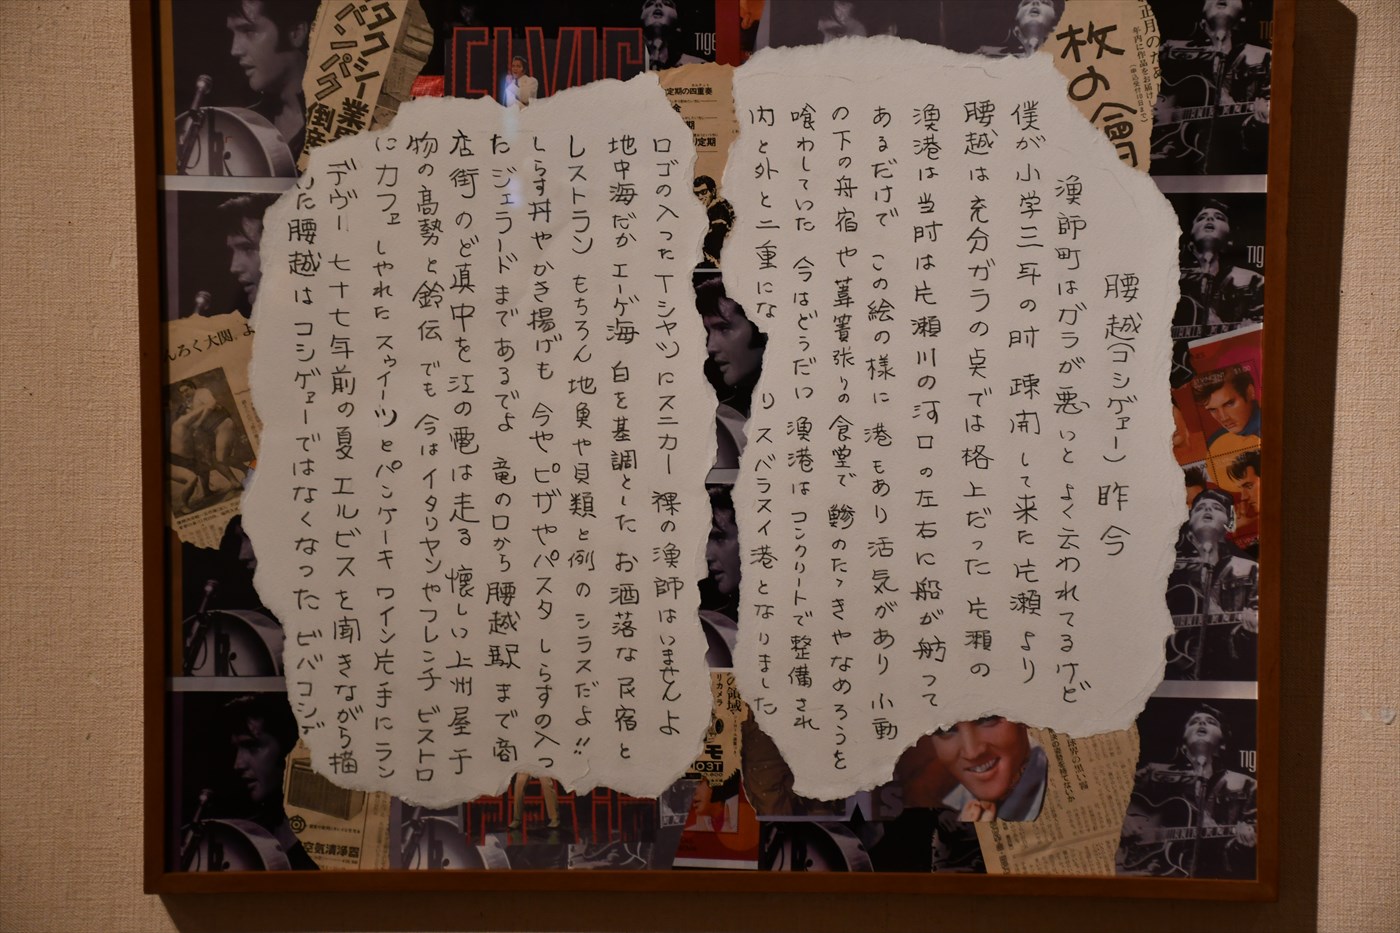 腰越(コシゲェー)昨今
漁師町はガラが悪いとよく云われてるけど
僕が小学三年の時 疎開して来た片瀬より
腰越は充分ガラの点では格上だった 片瀬の
漁港は当時は片瀬川の河口の左右に船が舫って
あるだけで この絵の様に港もあり活気があり 小動
の下の舟宿や葦簀張りの食堂で 鯵のたゝきやなめろうを
喰わしていた 今はどうだい 漁港はコンクリートで整備され
内と外と二重にな
りスバラスイ港となりました
ロゴの入ったTシャツにスニカー 裸の漁師はいませんよ
地中海だかエーゲ海 白を基調としたお洒落な民宿と
レストラン もちろん地魚や貝類と例のシラスだよ!!
しらす丼やかき揚げも 今やピザやパスタ しらすの入っ
たジェラードまであるでよ 竜の口から腰越駅まで商
店街のど真中を江の電は走る 懐しい上州屋干
物の高勢と鈴伝 でも今はイタリヤンやフレンチ ビストロ
にカフェ しゃれたスウィーツとパンケーキ ワイン片手にラン
デヴー 七十七年前の夏エルビスを聞きながら描
いた腰越はコシゲェーではなくなった ビバコシゲ
ELVIS
タクシー業界
パンパク倒産
定期の四重奏
枚の繪
五月のたあ
年内に作品をお届けし
んろく大関
空気清浄器
領域
リカメラ
モ
03T
球界の黒い霧